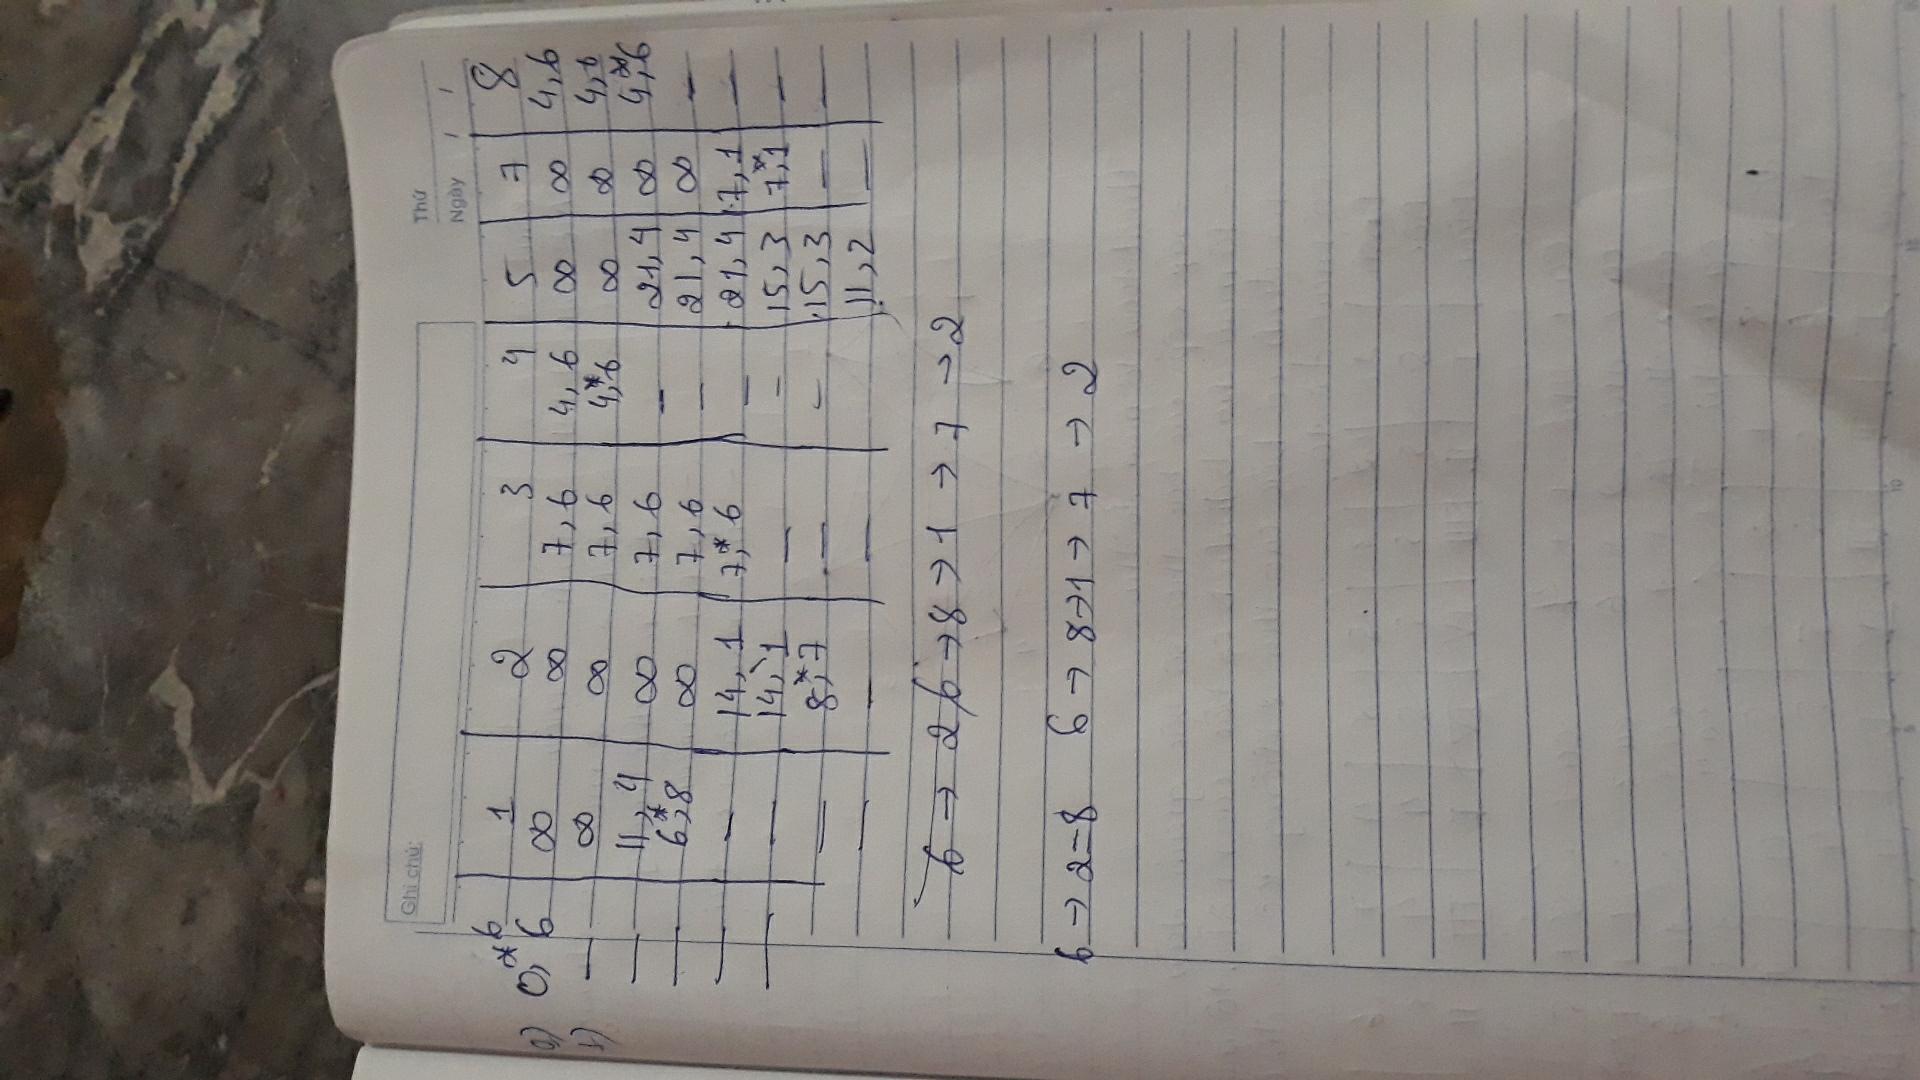 Thứ
Ngày / /
Ghi chú:
6 1 2 3 4 5 7 8
0,*6 ∞ ∞ 7,6 4,6 ∞ ∞ 4,6
— ∞ ∞ 7,6 4,*6 ∞ ∞ 4,6
— 11,4 ∞ 7,6 — 21,4 ∞ 4,*6
— 6,*8 ∞ 7,6 — 21,4 ∞ —
— — 14,1 7,*6 — 21,4 7,1 —
— — 14,1 — — 15,3 7,*1 —
— 8,*7 — — 15,3 — —
— — — 11,2 —
6 → 2 6 → 8 → 1 → 7 → 2
6 → 2 = 8 6 → 8 → 1 → 7 → 2